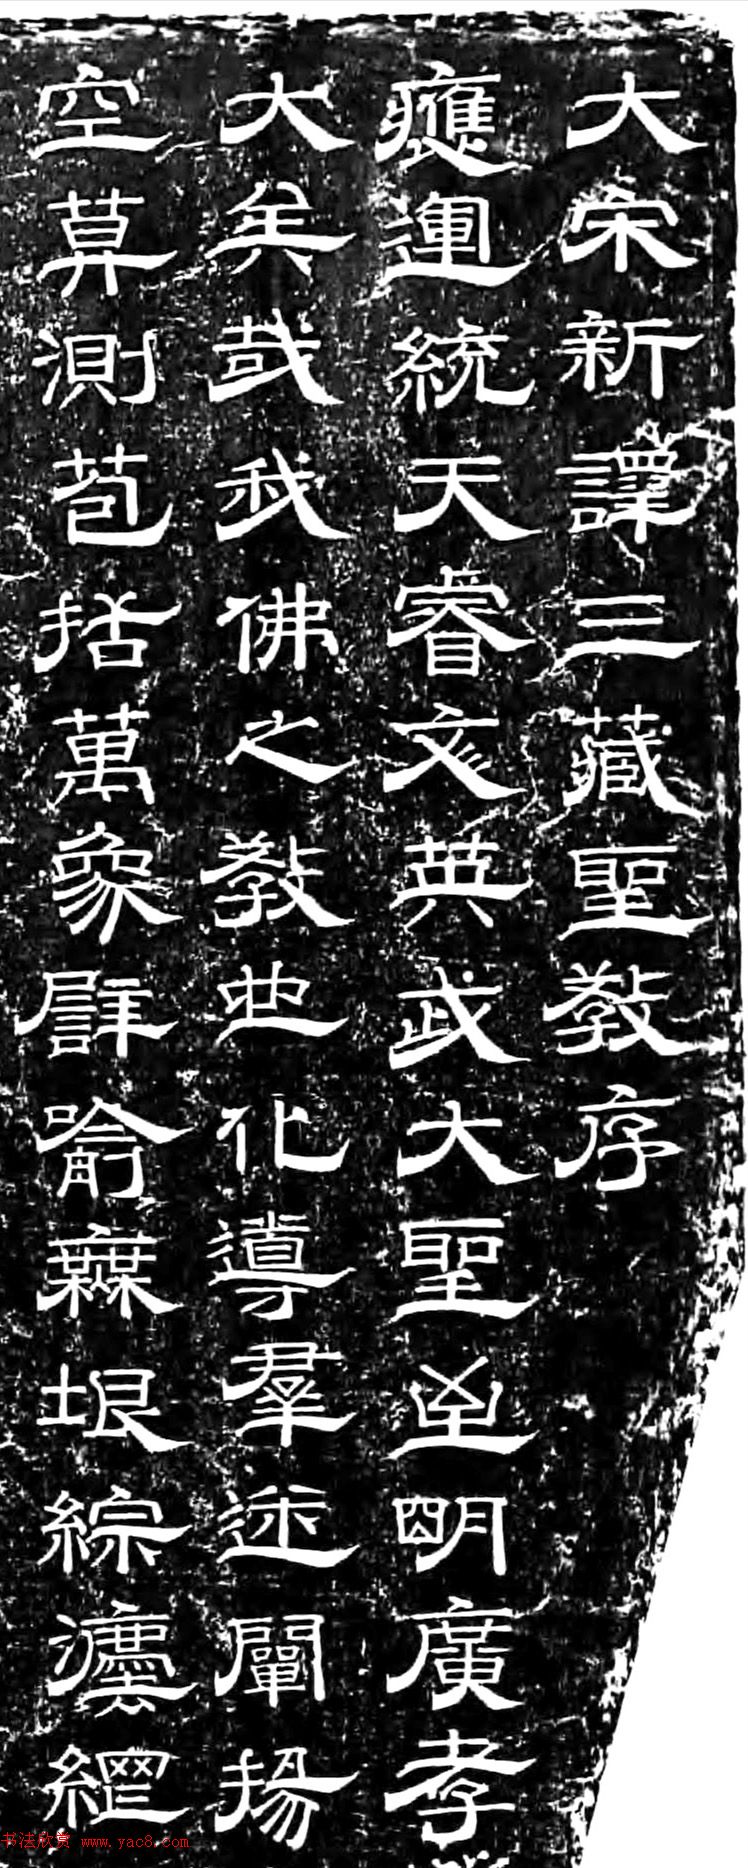 大宋新譯三藏聖教序
應運統天睿文英武大聖至明廣孝
大矣哉我佛之教也化導羣迷闡揚
空莫測苞括萬象譬喻無垠綜灋網
书法欣赏 www.yac8.com